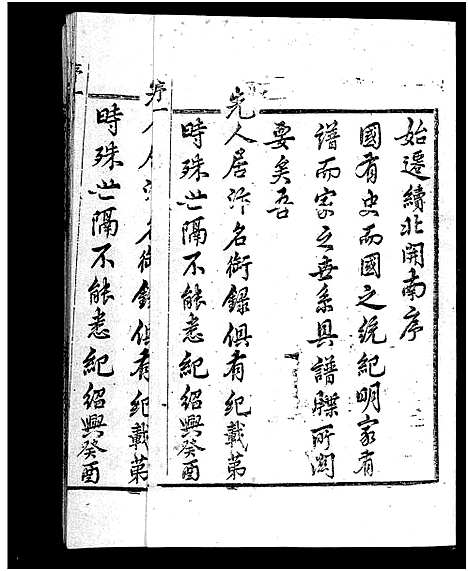 始遷續北開南序
國有史而國之統紀明家有
譜而家之世系具譜牒所関
要矣吾
先人居汴名銜錄俱有紀載第
時殊世隔不能悉紀紹興癸酉
序一
名銜錄俱有紀載第
時殊世隔不能悉紀紹興癸酉
序一